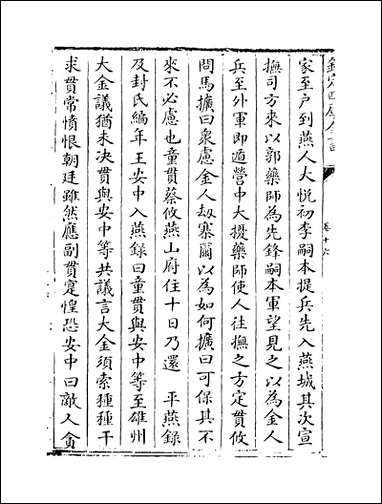 欽定四庫全書
卷十六
家至户到燕人大悦初李嗣本提兵先入燕城其次宣
撫司方來以郭藥師為先鋒嗣本軍望見之以為金人
兵至外軍即遁營中大擾藥師使人往撫之方定貫攸
問馬擴曰衆慮金人刼寨爾以為如何擴曰可保其不
來不必慮也童貫蔡攸燕山府住十日乃還 平燕錄
及封氏編年王安中入燕錄曰童貫與安中等至雄州
大金議猶未决貫與安中等共議言大金須索種種干
求貫常憤恨朝廷雖然應副貫寔惶恐安中曰敵人貪